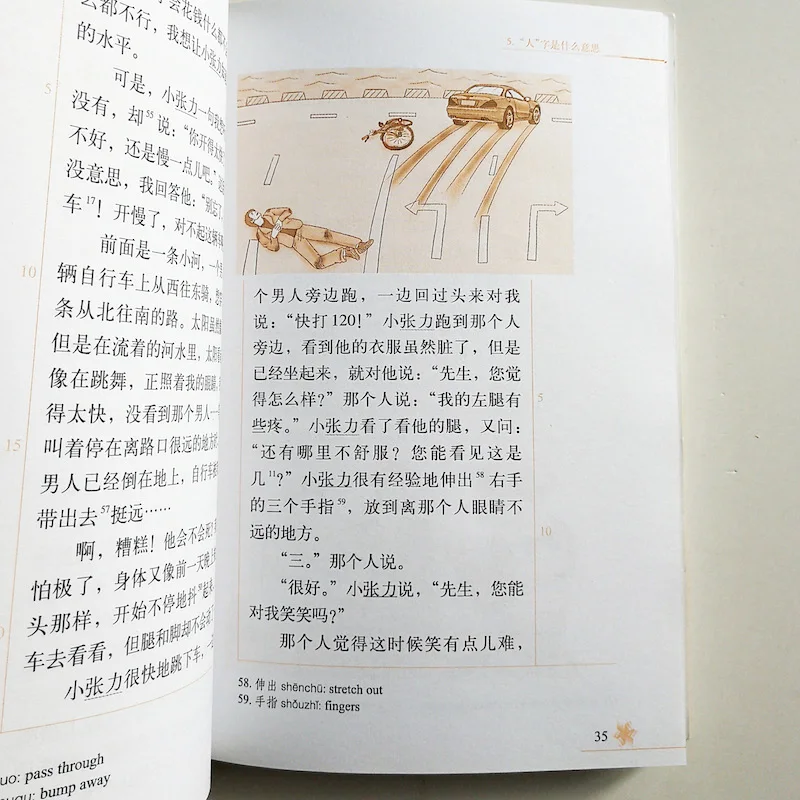 会花钱什么都
么都不行，我想让小张力
的水平。
可是，小张力一句
没有，却⁵⁵说：“你开得太
不好，还是慢一点儿吧。”
没意思，我回答他：“别忘了
车¹⁷！开慢了，对不起这辆
前面是一条小河，一个
辆自行车上从西往东骑，想
条从北往南的路。太阳虽然
但是在流着的河水里，太阳
像在跳舞，正照着我的眼睛，
得太快，没看到那个男人
叫着停在离路口很远的地方
男人已经倒在地上，自行车被
带出去⁵⁷挺远……
啊，糟糕！他会不会死？
怕极了，身体又像前一天晚上
头那样，开始不停地抖起来，
车去看看，但腿和脚却不会动了
小张力很快地跳下车，一
5
10
15
uo: pass through
bump away
5. “人”字是什么意思
个男人旁边跑，一边回过头来对我
说：“快打 120！”小张力跑到那个人
旁边，看到他的衣服虽然脏了，但是
已经坐起来，就对他说：“先生，您觉
得怎么样？”那个人说：“我的左腿有
些疼。”小张力看了看他的腿，又问：
“还有哪里不舒服？您能看见这是
几¹¹？”小张力很有经验地伸出⁵⁸右手
的三个手指⁵⁹，放到离那个人眼睛不
远的地方。
“三。”那个人说。
“很好。”小张力说，“先生，您能
对我笑笑吗？”
那个人觉得这时候笑有点儿难，
5
10
58. 伸出 shēnchū: stretch out
59. 手指 shǒuzhǐ: fingers
35